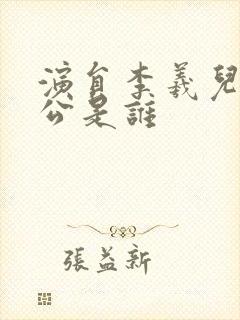 演員李義兒
公是誰
張益新